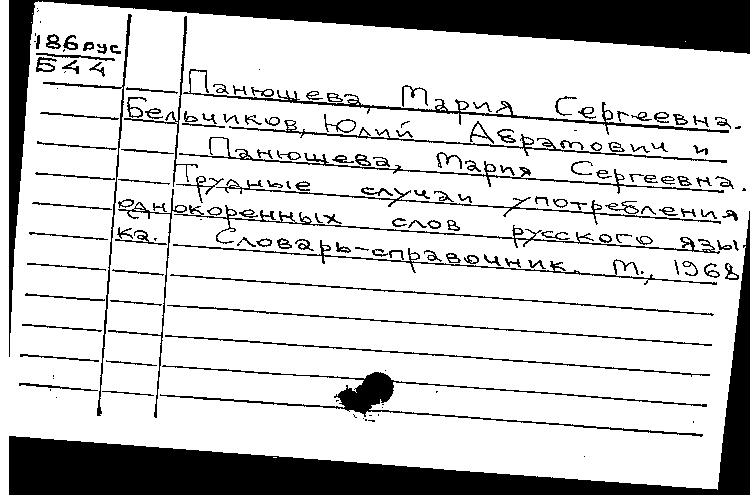 186рус
Б44
Панюшева, Мария Сергеевна.
Бельчиков, Юлий Абрамович и
Панюшева, Мария Сергеевна.
Трудные случаи употребления
однокоренных слов русского язы-
ка. Словарь-справочник. М., 1968